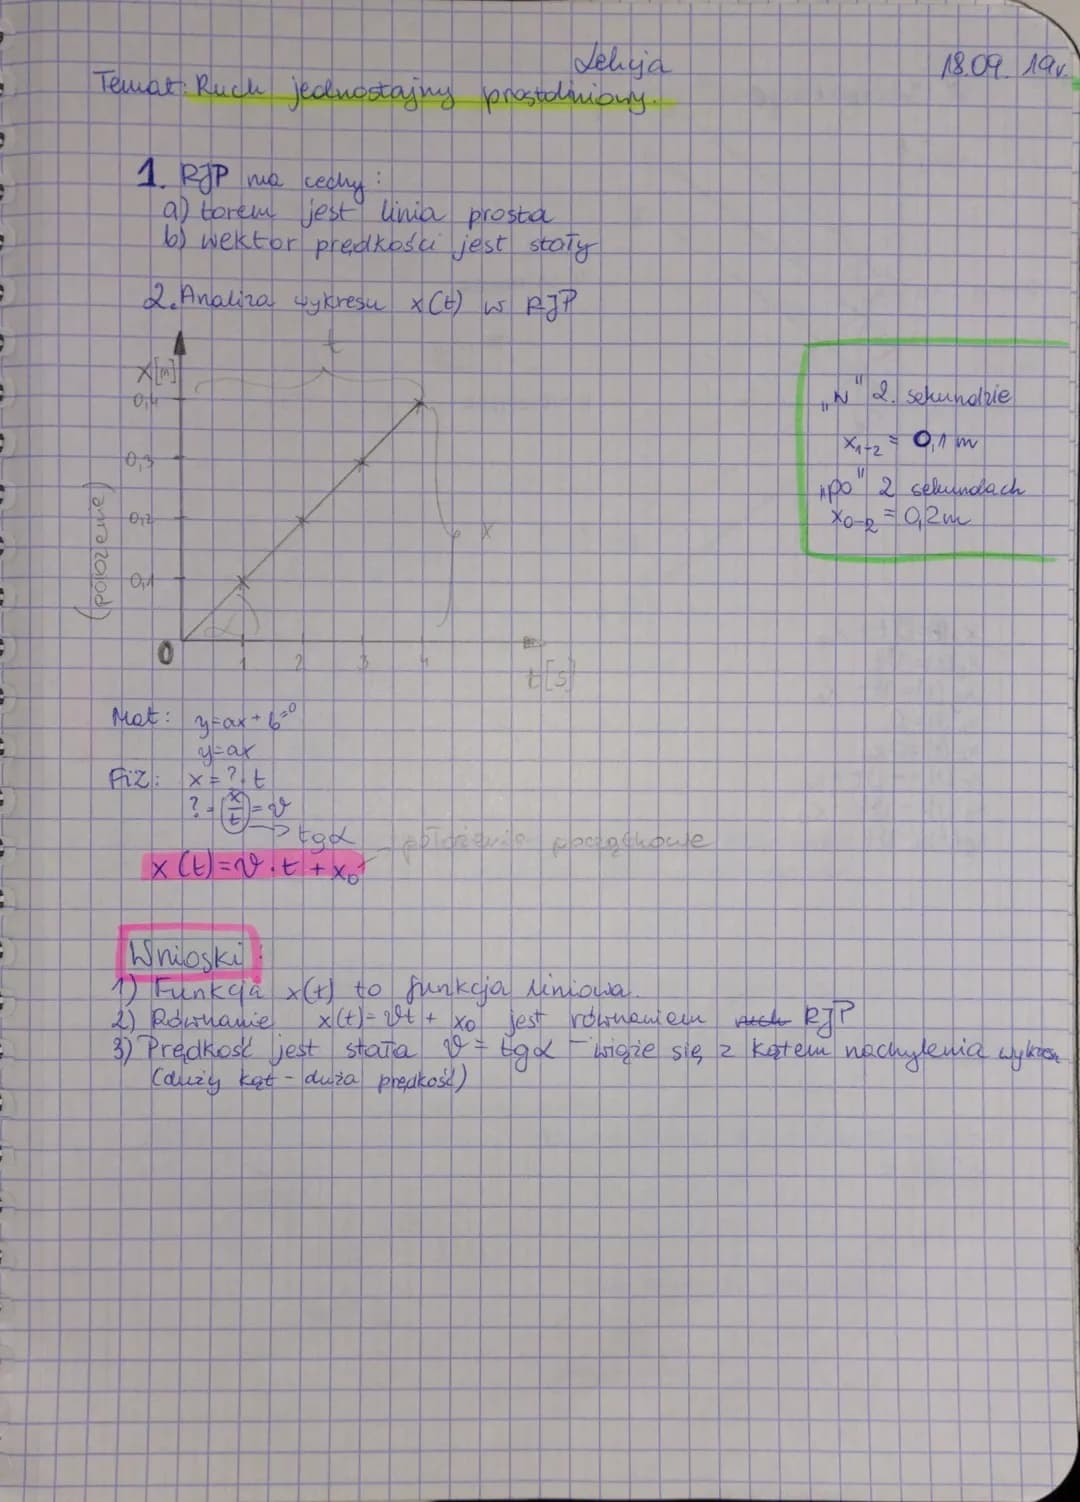 Lekcja 18.09.19r.
Temat: Ruch jednostajny prostoliniowy.
1. RJP ma cechy:
a) torem jest linia prosta
b) wektor prędkości jest stały
2. Analiza wykresu x(t) w RJP
t
x[m]
0,4
0,3
0,2
0,1
(położenie)
x
α
0 1 2 3 4
t[s]
„W" 2. sekundzie
x₁₋₂ = 0,1 m
„po" 2 sekundach
x₀₋₂ = 0,2m
Mat: y=ax+b⁼⁰
y=ax
Fiz: x=?·t
?=(x/t)=v
→ tgα
x(t)=v·t+x₀ położenie początkowe
Wnioski:
1) Funkcja x(t) to funkcja liniowa.
2) Równanie x(t)=vt+x₀ jest równaniem ruch RJP
3) Prędkość jest stała v=tgα - wiąże się z kątem nachylenia wykresu
(duży kąt - duża prędkość)